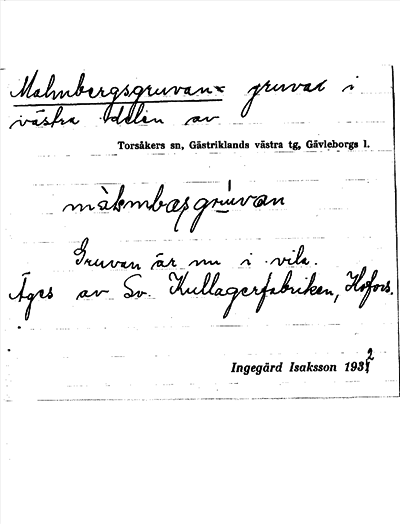 Malmbergsgruvan = gruvar i
västra delen av
Torsåkers sn, Gästriklands västra tg, Gävleborgs l.
màlmbæsgrúvan
Gruvan är nu i vila.
Äges av Sv. Kullagerfabriken, Hofors.
Ingegärd Isaksson 1932